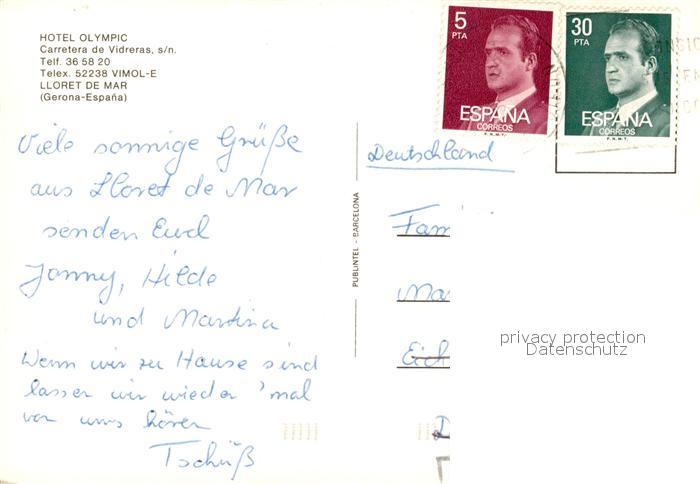 HOTEL OLYMPIC
Carretera de Vidreras, s/n.
Telf. 36 58 20
Telex. 52238 VIMOL-E
LLORET DE MAR
(Gerona-España)
Viele sonnige Grüße
aus Lloret de Mar
senden Euch
Jonny, Hilde
und Martina
Wenn wir zu Hause sind
lassen wir wieder 'mal
von uns hören
Tschüß
PUBLINTEL - BARCELONA
5
PTA
ESPAÑA
CORREOS
F.N.M.T.
30
PTA
ESPAÑA
CORREOS
F.N.M.T.
Deutschland
Fam
Ma
Eich
D
privacy protection
Datenschutz